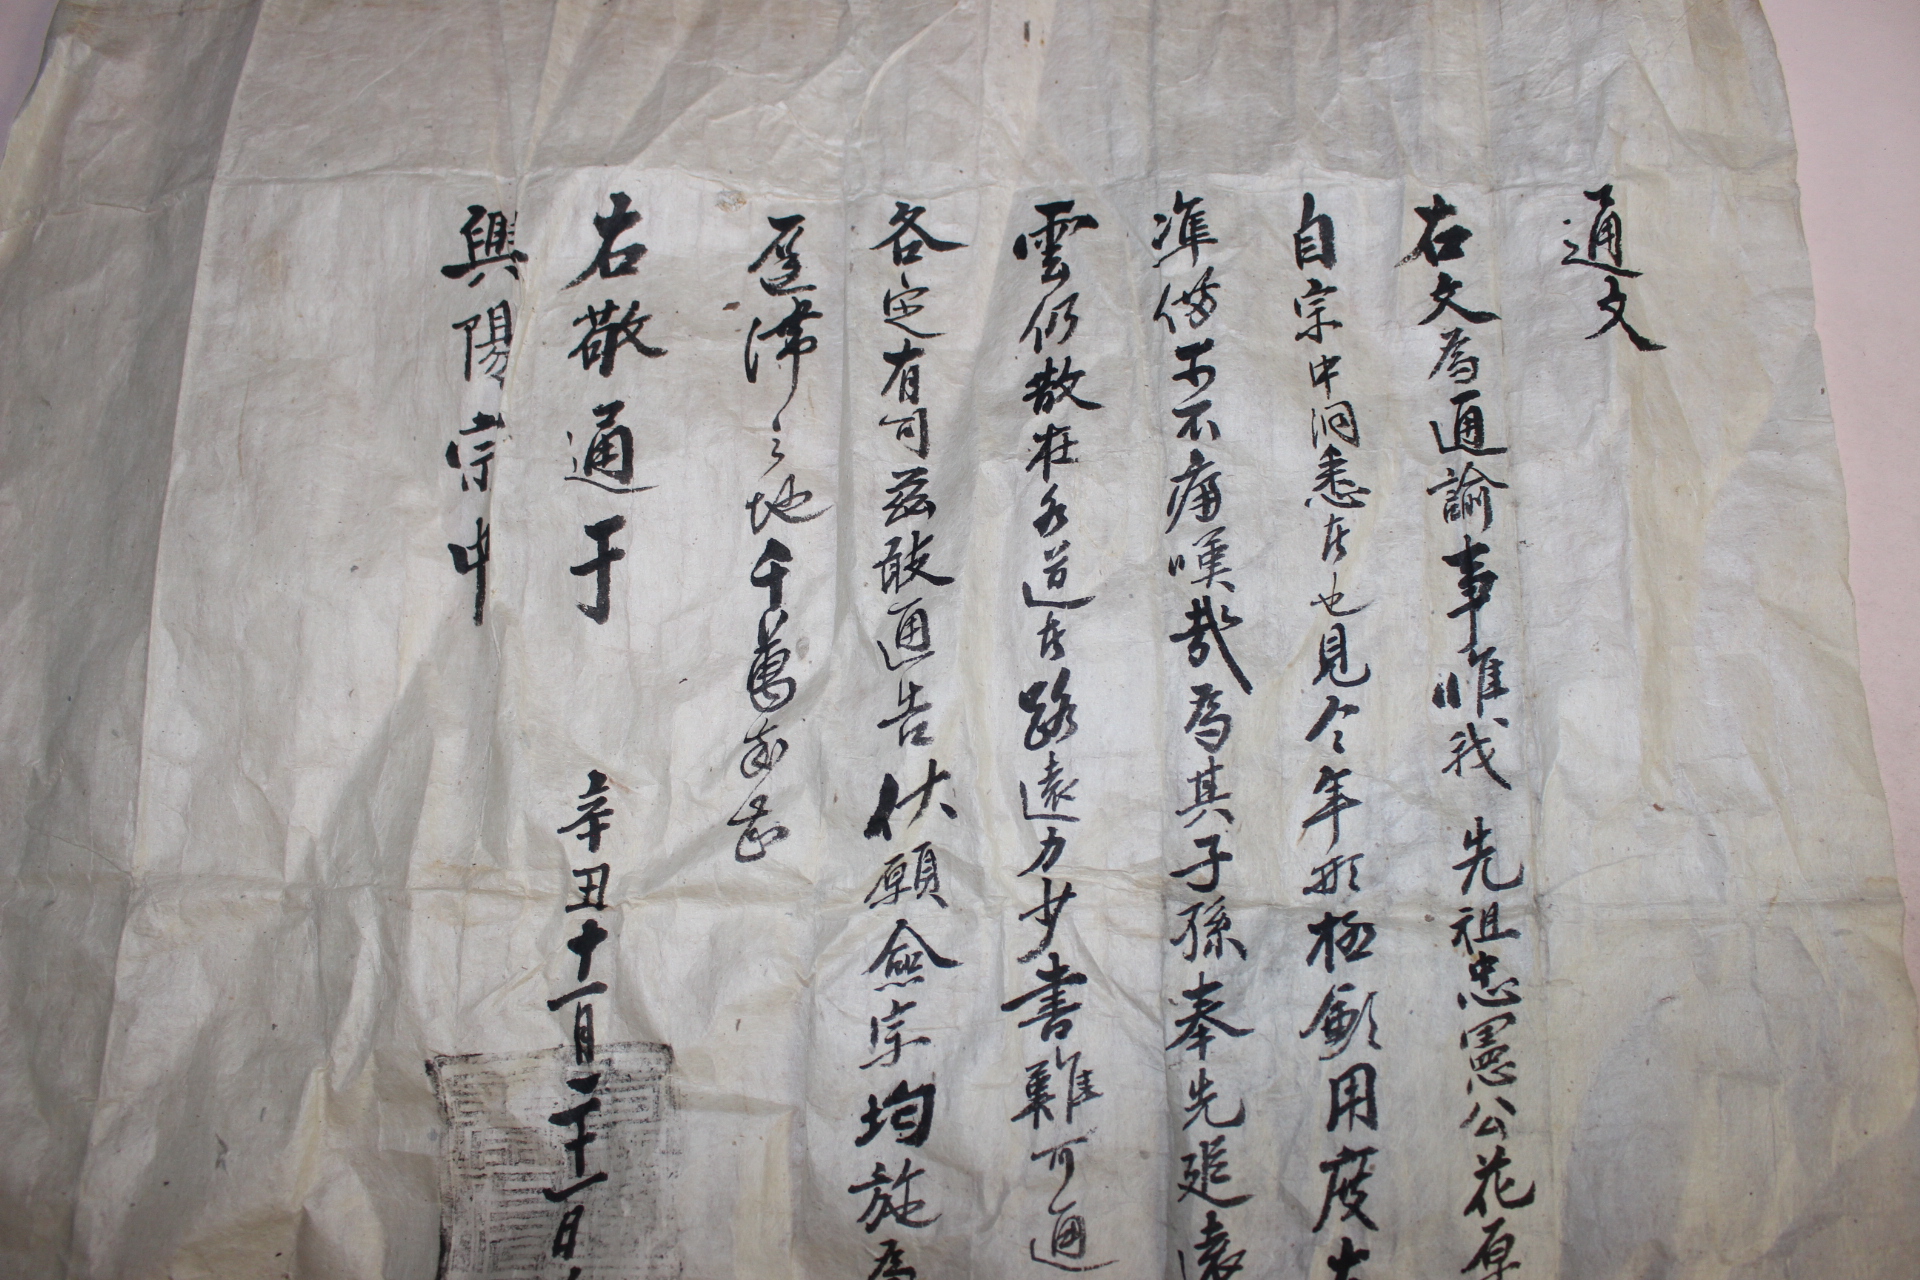 通文
右文爲通諭事唯我 先祖忠憲公花原
自宗中洞悉在也見今年形極歉用度
準備不痛嘆哉爲其子孫奉先追遠
雲仍散在各道在路遠力少書難可通
各定有司玆敢通告伏願僉宗均施爲
滯之地千萬幸甚
右敬通于 辛丑十一月二十一日
興陽宗中